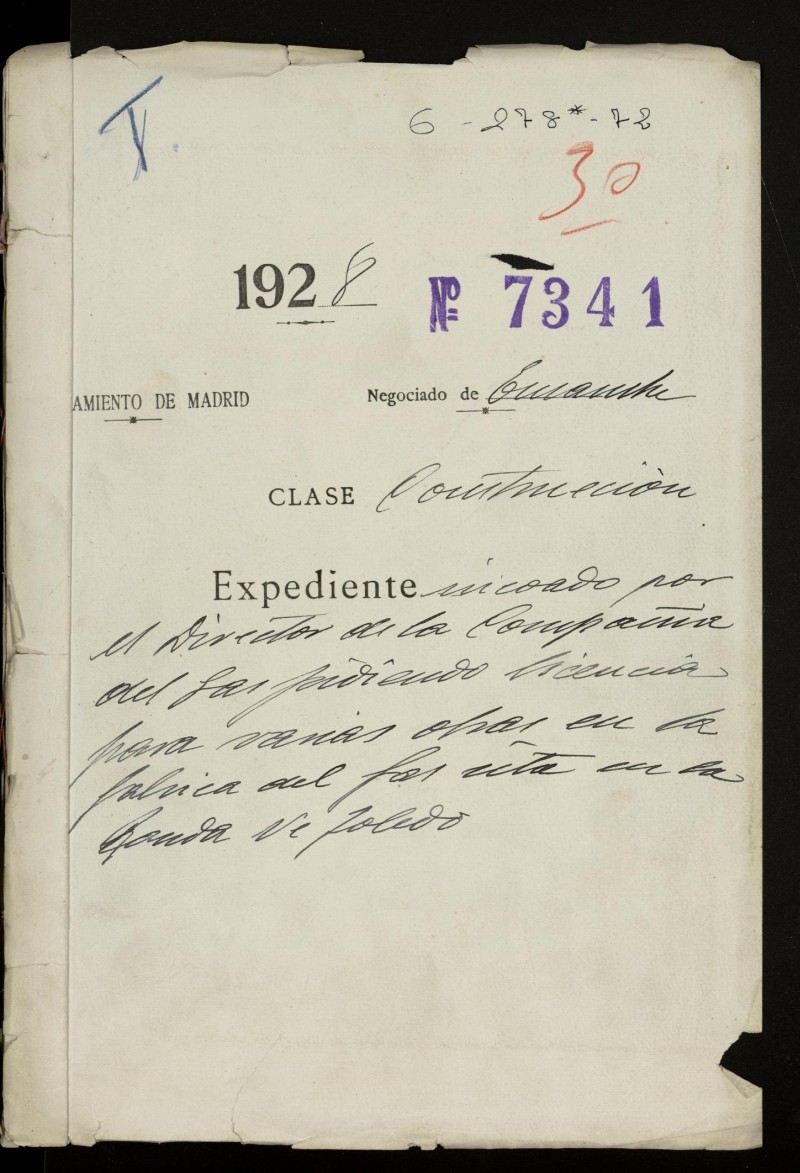 6 - 278* - 72
30
1928
Nº 7341
AMIENTO DE MADRID
Negociado de Ensanche
CLASE Construcción
Expediente incoado por
el Director de la Compañia
del Gas pidiendo licencia
para varias obras en la
fabrica del Gas sita en la
Ronda de Toledo